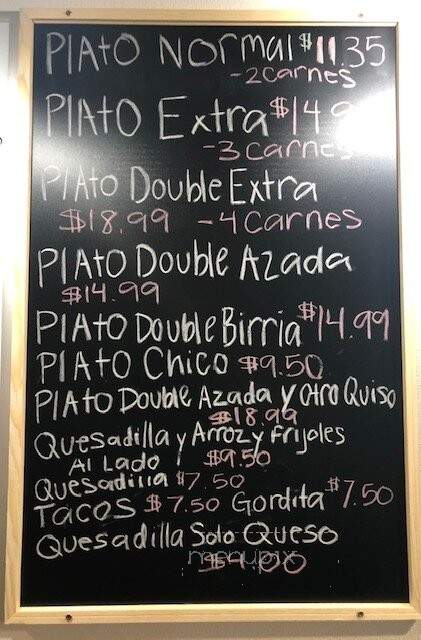 Plato Normal $11.35
-2carnes
Plato Extra $14.9
-3 carnes
Plato Double Extra
$18.99 -4 Carnes
Plato Double Azada
$14.99
Plato Double Birria $14.99
Plato Chico $9.50
Plato Double Azada y Otro Quiso
$18.99
Quesadilla y Arroz y frijoles
Al Lado $9.50
Quesadilla $7.50
Tacos $7.50 Gordita $7.50
Quesadilla Solo Queso
menupix
$4.00